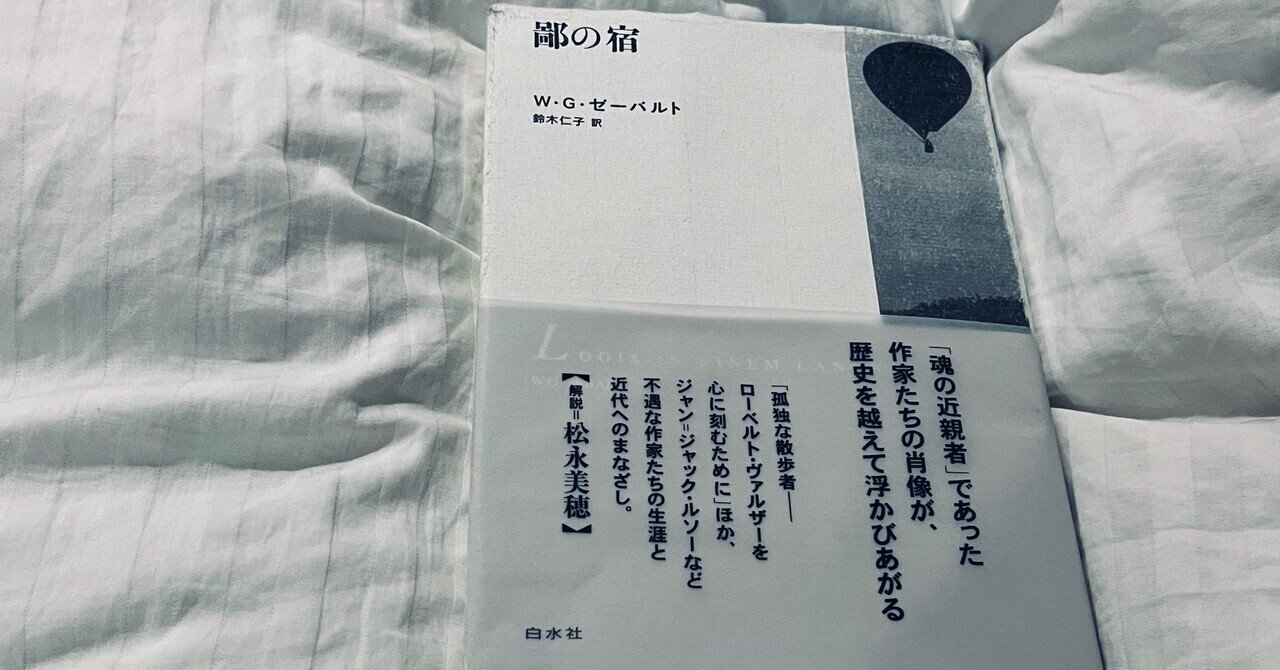 鄙の宿
W・G・ゼーバルト
鈴木仁子 訳
「魂の近親者」であった
作家たちの肖像が、
歴史を越えて浮かびあがる
「孤独な散歩者――
ローベルト・ヴァルザーを
心に刻むために」ほか、
ジャン=ジャック・ルソーなど
不遇な作家たちの生涯と
近代へのまなざし。
【解説=松永美穂】
白水社